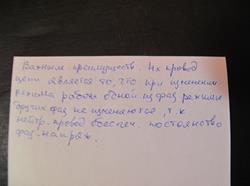 Важным преимуществ. 4х провод
цепи является то, что при изменении
режима работы одной из фаз режимы
других фаз не изменяются, т.к
нейтр. провод обеспеч. постоянство
фаз. напряж.